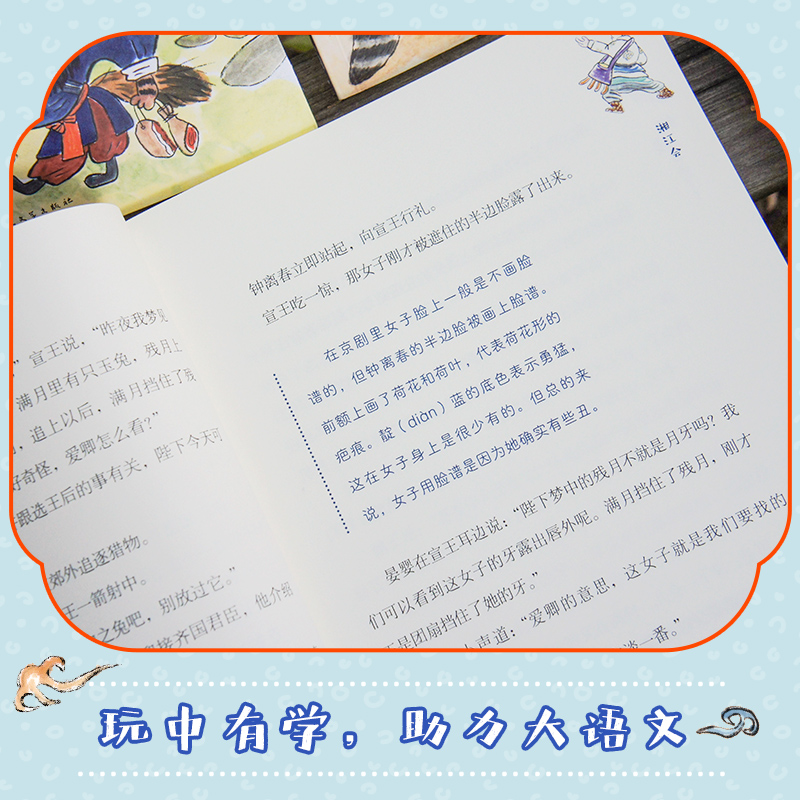 湘江会
钟离春立即站起，向宣王行礼。
宣王吃一惊，那女子刚才被遮住的半边脸露了出来。
在京剧里女子脸上一般是不画脸
谱的，但钟离春的半边脸被画上脸谱。
前额上画了荷花和荷叶，代表荷花形的
疤痕。靛（diàn）蓝的底色表示勇猛，
这在女子身上是很少有的。但总的来
说，女子用脸谱是因为她确实有些丑。
晏婴在宣王耳边说：“陛下梦中的残月不就是月牙吗？我
们可以看到这女子的牙露出唇外呢。满月挡住了残月，刚才
是团扇挡住了她的牙。”
小声道：“爱卿的意思，这女子就是我们要找的
谈一番。”
宣王说，“昨夜我梦见
满月里有只玉兔，残月上
，追上以后，满月挡住了残
奇怪，爱卿怎么看？”
跟选王后的事有关，陛下今天可
郊外追逐猎物。
王一箭射中。
之兔吧，别放过它。”
接齐国君臣，他介绍
出版社
玩中有学，助力大语文